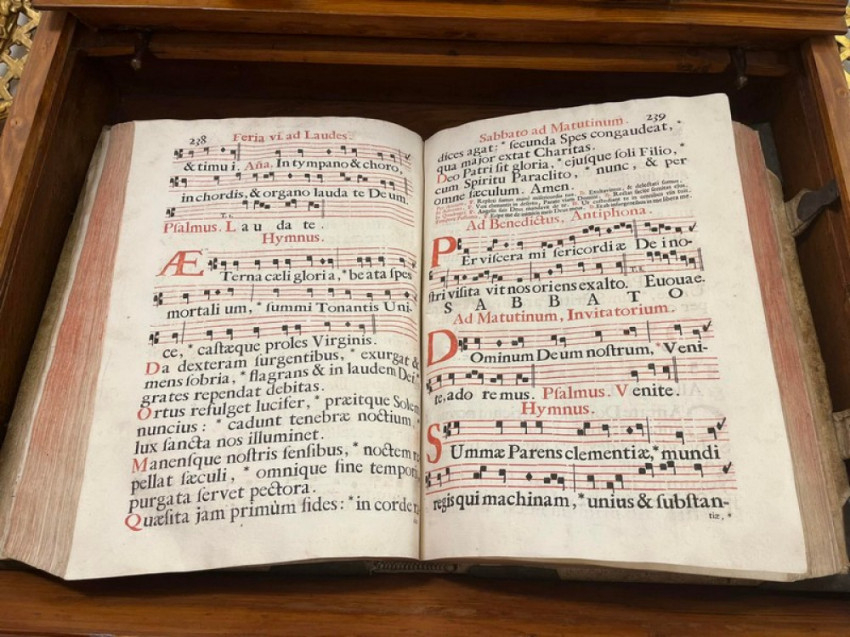 238 Feria vi. ad Laudes.
& timu i. Aña. In tympano & choro,
in chordis, & organo lauda te De um.
T. 1.
Psalmus. L au da te.
Hymnus.
Æ
Terna cæli gloria, * be ata spes
mortali um, * summi Tonantis Uni-
ce, * castæque proles Virginis.
Da dexteram surgentibus, * exurgat &
mens sobria, * flagrans & in laudem Dei *
grates rependat debitas.
Ortus refulget lucifer, * præitque Solem
nuncius: * cadunt tenebræ noctium,
lux sancta nos illuminet.
Manensque nostris sensibus, * noctem
pellat sæculi, * omnique fine tempo
purgata servet pectora.
Quæsita jam primùm fides: * in corde
Sabbato ad Matutinum. 239
dices agat: * secunda Spes congaudeat, *
qua major extat Charitas.
Deo Patri sit gloria, * ejusque soli Filio, *
cum Spiritu Paraclito, * nunc, & per
omne sæculum. Amen.
Ad Benedictus, Antiphona.
P
Er viscera mi sericordi æ De i no-
stri visita vit nos oriens exalto. Euouae.
S A B B A T O
Ad Matutinum, Invitatorium.
D
Ominum De um nostrum, * Veni-
te, ado re mus. Psalmus. V enite.
Hymnus.
S
Ummæ Parens clementiæ, * mundi
regis qui machinam, * unius & substan-
tiæ, *